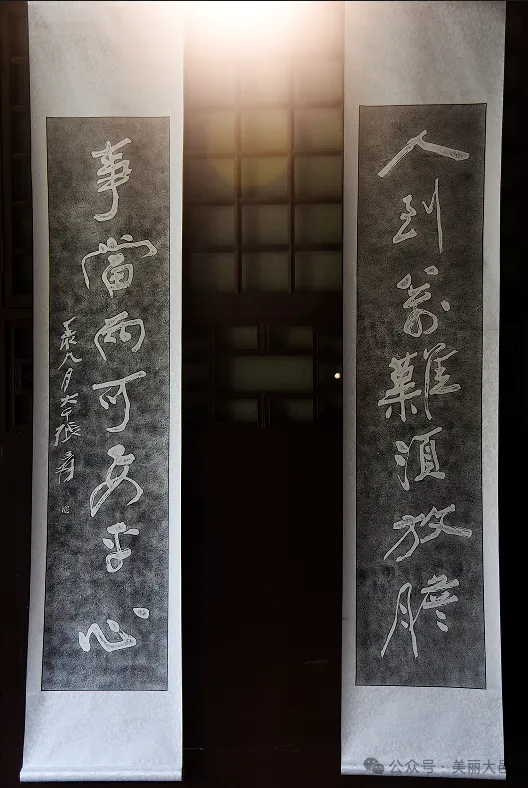 人到萬難須放膽
事當兩可要平心
壬辰八月大千張爰
公众号 · 美丽大邑